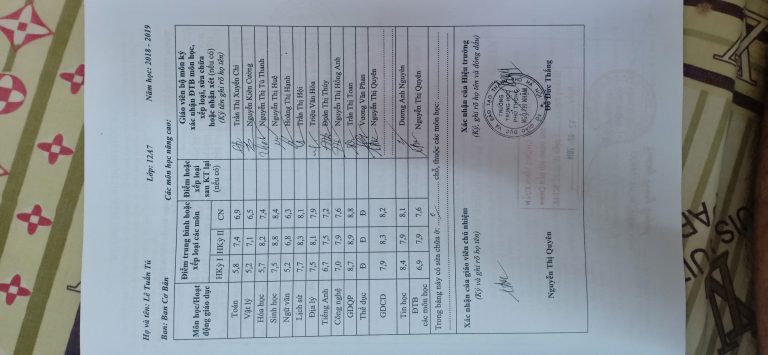 Họ và tên: Lê Tuấn Tú Lớp: 12A7 Năm học: 2018 - 2019
Ban: Ban Cơ Bản Các môn học nâng cao:
Môn học/Hoạt động giáo dục | Điểm trung bình hoặc xếp loại các môn | Điểm hoặc xếp loại sau KT lại (nếu có) | Giáo viên bộ môn ký xác nhận ĐTB môn học, xếp loại, sửa chữa hoặc nhận xét (nếu có) (Ký tên ghi rõ họ tên)
HKỳ I HKỳ II CN
Toán 5,8 7,4 6,9 Trần Thị Kuyến Chi
Vật lý 5,2 7,1 6,5 Nguyễn Kiên Cường
Hóa học 5,7 8,2 7,4 Nguyễn Thị Tú Thanh
Sinh học 7,5 8,8 8,4 Nguyễn Thị Huệ
Ngữ văn 5,2 6,8 6,3 Hoàng Thị Hạnh
Lịch sử 7,7 8,3 8,1 Trần Thị Hội
Địa lý 7,5 8,1 7,9 Triệu Văn Hòa
Tiếng Anh 6,7 7,5 7,2 Đoàn Thị Thúy
Công nghệ 7,0 7,9 7,6 Nguyễn Thị Hồng Anh
GDQP 8,7 8,9 8,8 Trần Thị Toan
Thể dục Đ Đ Đ Vương Văn Phan
GDCD 7,9 8,3 8,2 Nguyễn Thị Quyên
Tin học 8,4 7,9 8,1 Dương Anh Nguyên
ĐTB các môn học 6,9 7,9 7,6 Nguyễn Thị Quyên
Trong bảng này có sửa chữa ở: chỗ, thuộc các môn học:
Xác nhận của giáo viên chủ nhiệm Xác nhận của Hiệu trưởng
(Ký và ghi rõ họ tên) (Ký, ghi rõ họ tên và đóng dấu)
TRƯỜNG
TRUNG HỌC
PHỔ THÔNG
Nguyễn Thị Quyên Đỗ Đức Thắng